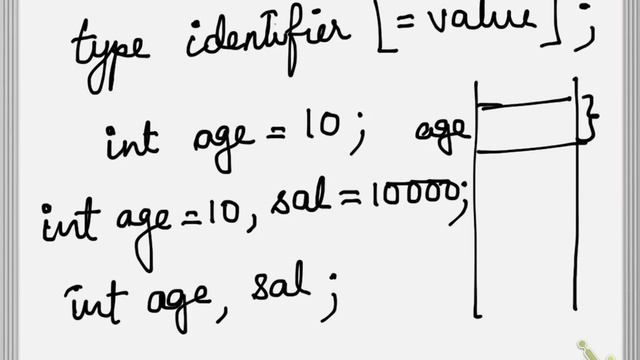 type identifier [= value] ;
int age = 10 ; age
int age = 10, sal = 10000;
int age, sal ;